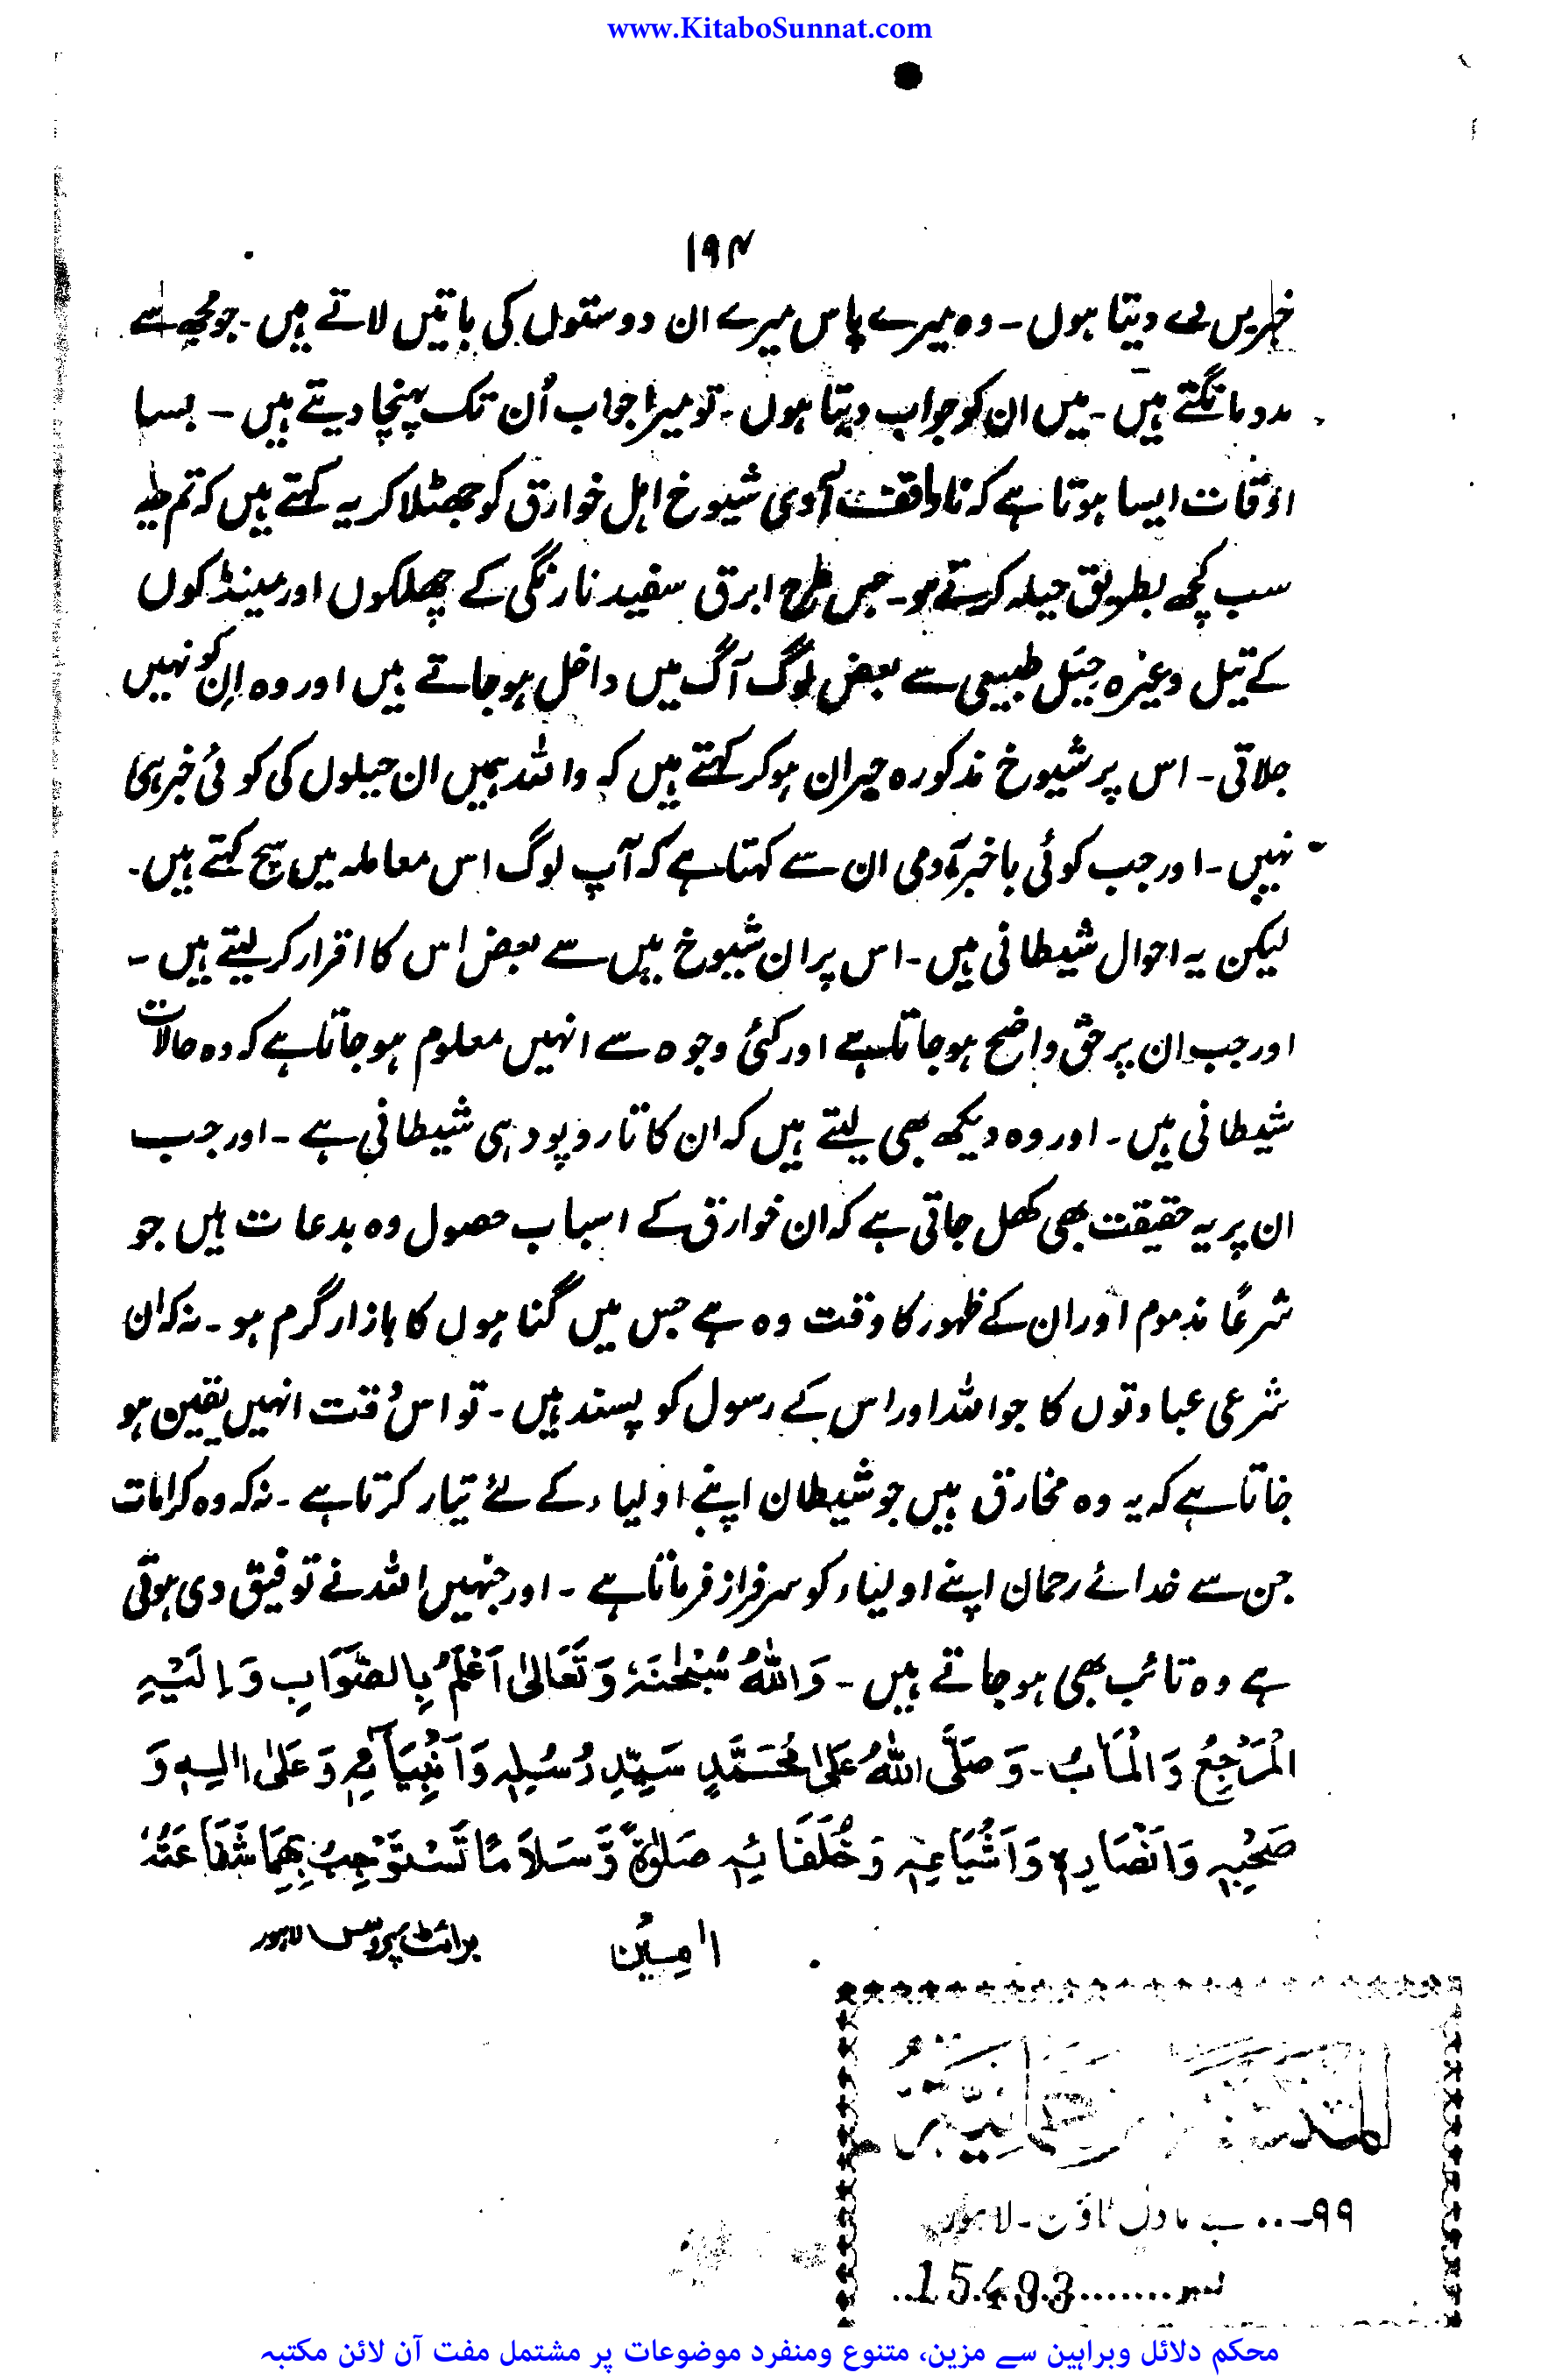 www.KitaboSunnat.com
۱۹۴
خبریں بے دیتا ہوں ۔ وہ میرے پاس میرے ان دوستوں کی باتیں لاتے ہیں ۔ جو مجھ سے
مدد مانگتے ہیں ۔ میں ان کو جواب دیتا ہوں ۔ تو میرا جواب اُن تک پہنچا دیتے ہیں ۔ بسا
اوقات ایسا ہوتا ہے کہ ناواقف آدمی شیوخ اہل خوارق کو جھٹلا کر یہ کہتے ہیں کہ تم یہ
سب کچھ بطریق حیلہ کرتے ہو ۔ جس طرح ابرق سفید نارنگی کے چھلکوں اور مینڈکوں
کے تیل وغیرہ حیَل طبیعی سے بعض لوگ آگ میں داخل ہو جاتے ہیں اور وہ اِن کو نہیں
جلاتی ۔ اس پر شیوخ مذکورہ حیران ہو کر کہتے ہیں کہ واللہ ہمیں ان حیلوں کی کوئی خبر ہی
نہیں ۔ اور جب کوئی باخبر آدمی ان سے کہتا ہے کہ آپ لوگ اس معاملہ میں سچ کہتے ہیں ۔
لیکن یہ احوال شیطانی ہیں ۔ اس پر ان شیوخ میں سے بعض اس کا اقرار کر لیتے ہیں ۔
اور جب ان پر حق واضح ہو جاتا ہے اور کئی وجوہ سے انہیں معلوم ہو جاتا ہے کہ وہ حالات
شیطانی ہیں ۔ اور وہ دیکھ بھی لیتے ہیں کہ ان کا تار و پود ہی شیطانی ہے ۔ اور جب
ان پر یہ حقیقت بھی کھل جاتی ہے کہ ان خوارق کے اسباب حصول وہ بدعات ہیں جو
شرعًا مذموم اور ان کے ظہور کا وقت وہ ہے جس میں گناہوں کا بازار گرم ہو ۔ نہ کہ ان
شرعی عبادتوں کا جو اللہ اور اس کے رسول کو پسند ہیں ۔ تو اس وقت انہیں یقین ہو
جاتا ہے کہ یہ وہ مخارق ہیں جو شیطان اپنے اولیاء کے لئے تیار کرتا ہے ۔ نہ کہ وہ کرامات
جن سے خدائے رحمان اپنے اولیاء کو سرفراز فرماتا ہے ۔ اور جنہیں اللہ نے توفیق دی ہوتی
ہے وہ تائب بھی ہو جاتے ہیں ۔ وَاللّٰهُ سُبْحٰنَهٗ وَتَعَالىٰ اَعْلَمُ بِالصَّوَابِ وَاِلَيْهِ
الْمَرْجِعُ وَالْمَاٰبُ ۔ وَصَلَّى اللّٰهُ عَلىٰ مُحَمَّدٍ سَيِّدِ رُسُلِهٖ وَاَنْبِيَآئِهٖ وَعَلىٰ اٰلِهٖ وَ
صَحْبِهٖ وَاَنْصَارِهٖ وَاَشْيَاعِهٖ وَخُلَفَائِهٖ صَلٰوةً وَّسَلَامًا تَسْتَوْجِبُ بِهِمَا شَفَاعَتَهٗ
اٰمِيْن
برائٹ پریس لاہور
المدرسة رحمانیة
۹۹ ... جے ماڈل ٹاؤن ۔ لاہور
نمبر ........15493..
محکم دلائل وبراہین سے مزین، متنوع ومنفرد موضوعات پر مشتمل مفت آن لائن مکتبہ